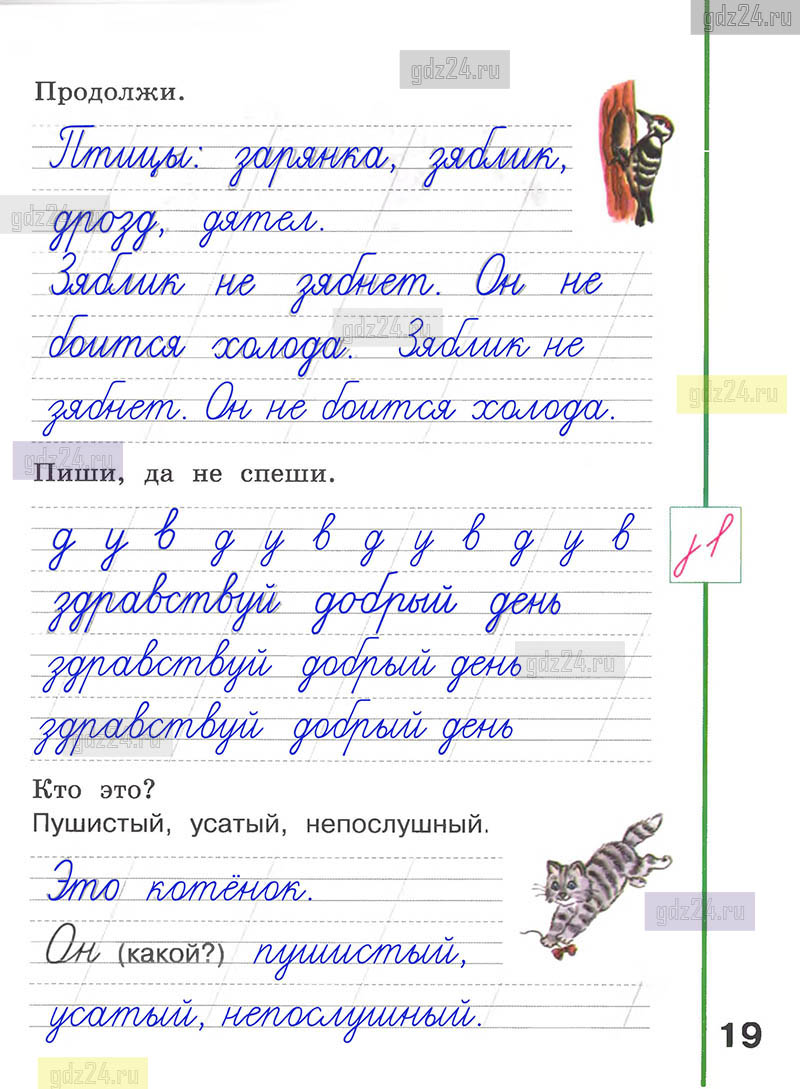 gdz24.ru
gdz24.ru
Продолжи.
Птицы: зарянка, зяблик,
gdz24.ru
дрозд, дятел.
Зяблик не зябнет. Он не
gdz24.ru
боится холода. Зяблик не
gdz24.ru
зябнет. Он не боится холода.
gdz24.ru
Пиши, да не спеши.
д у в д у в д у в д у в
здравствуй добрый день
здравствуй добрый день
gdz24.ru
здравствуй добрый день
gdz24.ru
Кто это?
Пушистый, усатый, непослушный.
Это котёнок.
gdz24.ru
Он (какой?) пушистый,
усатый, непослушный.
19
gdz24.ru